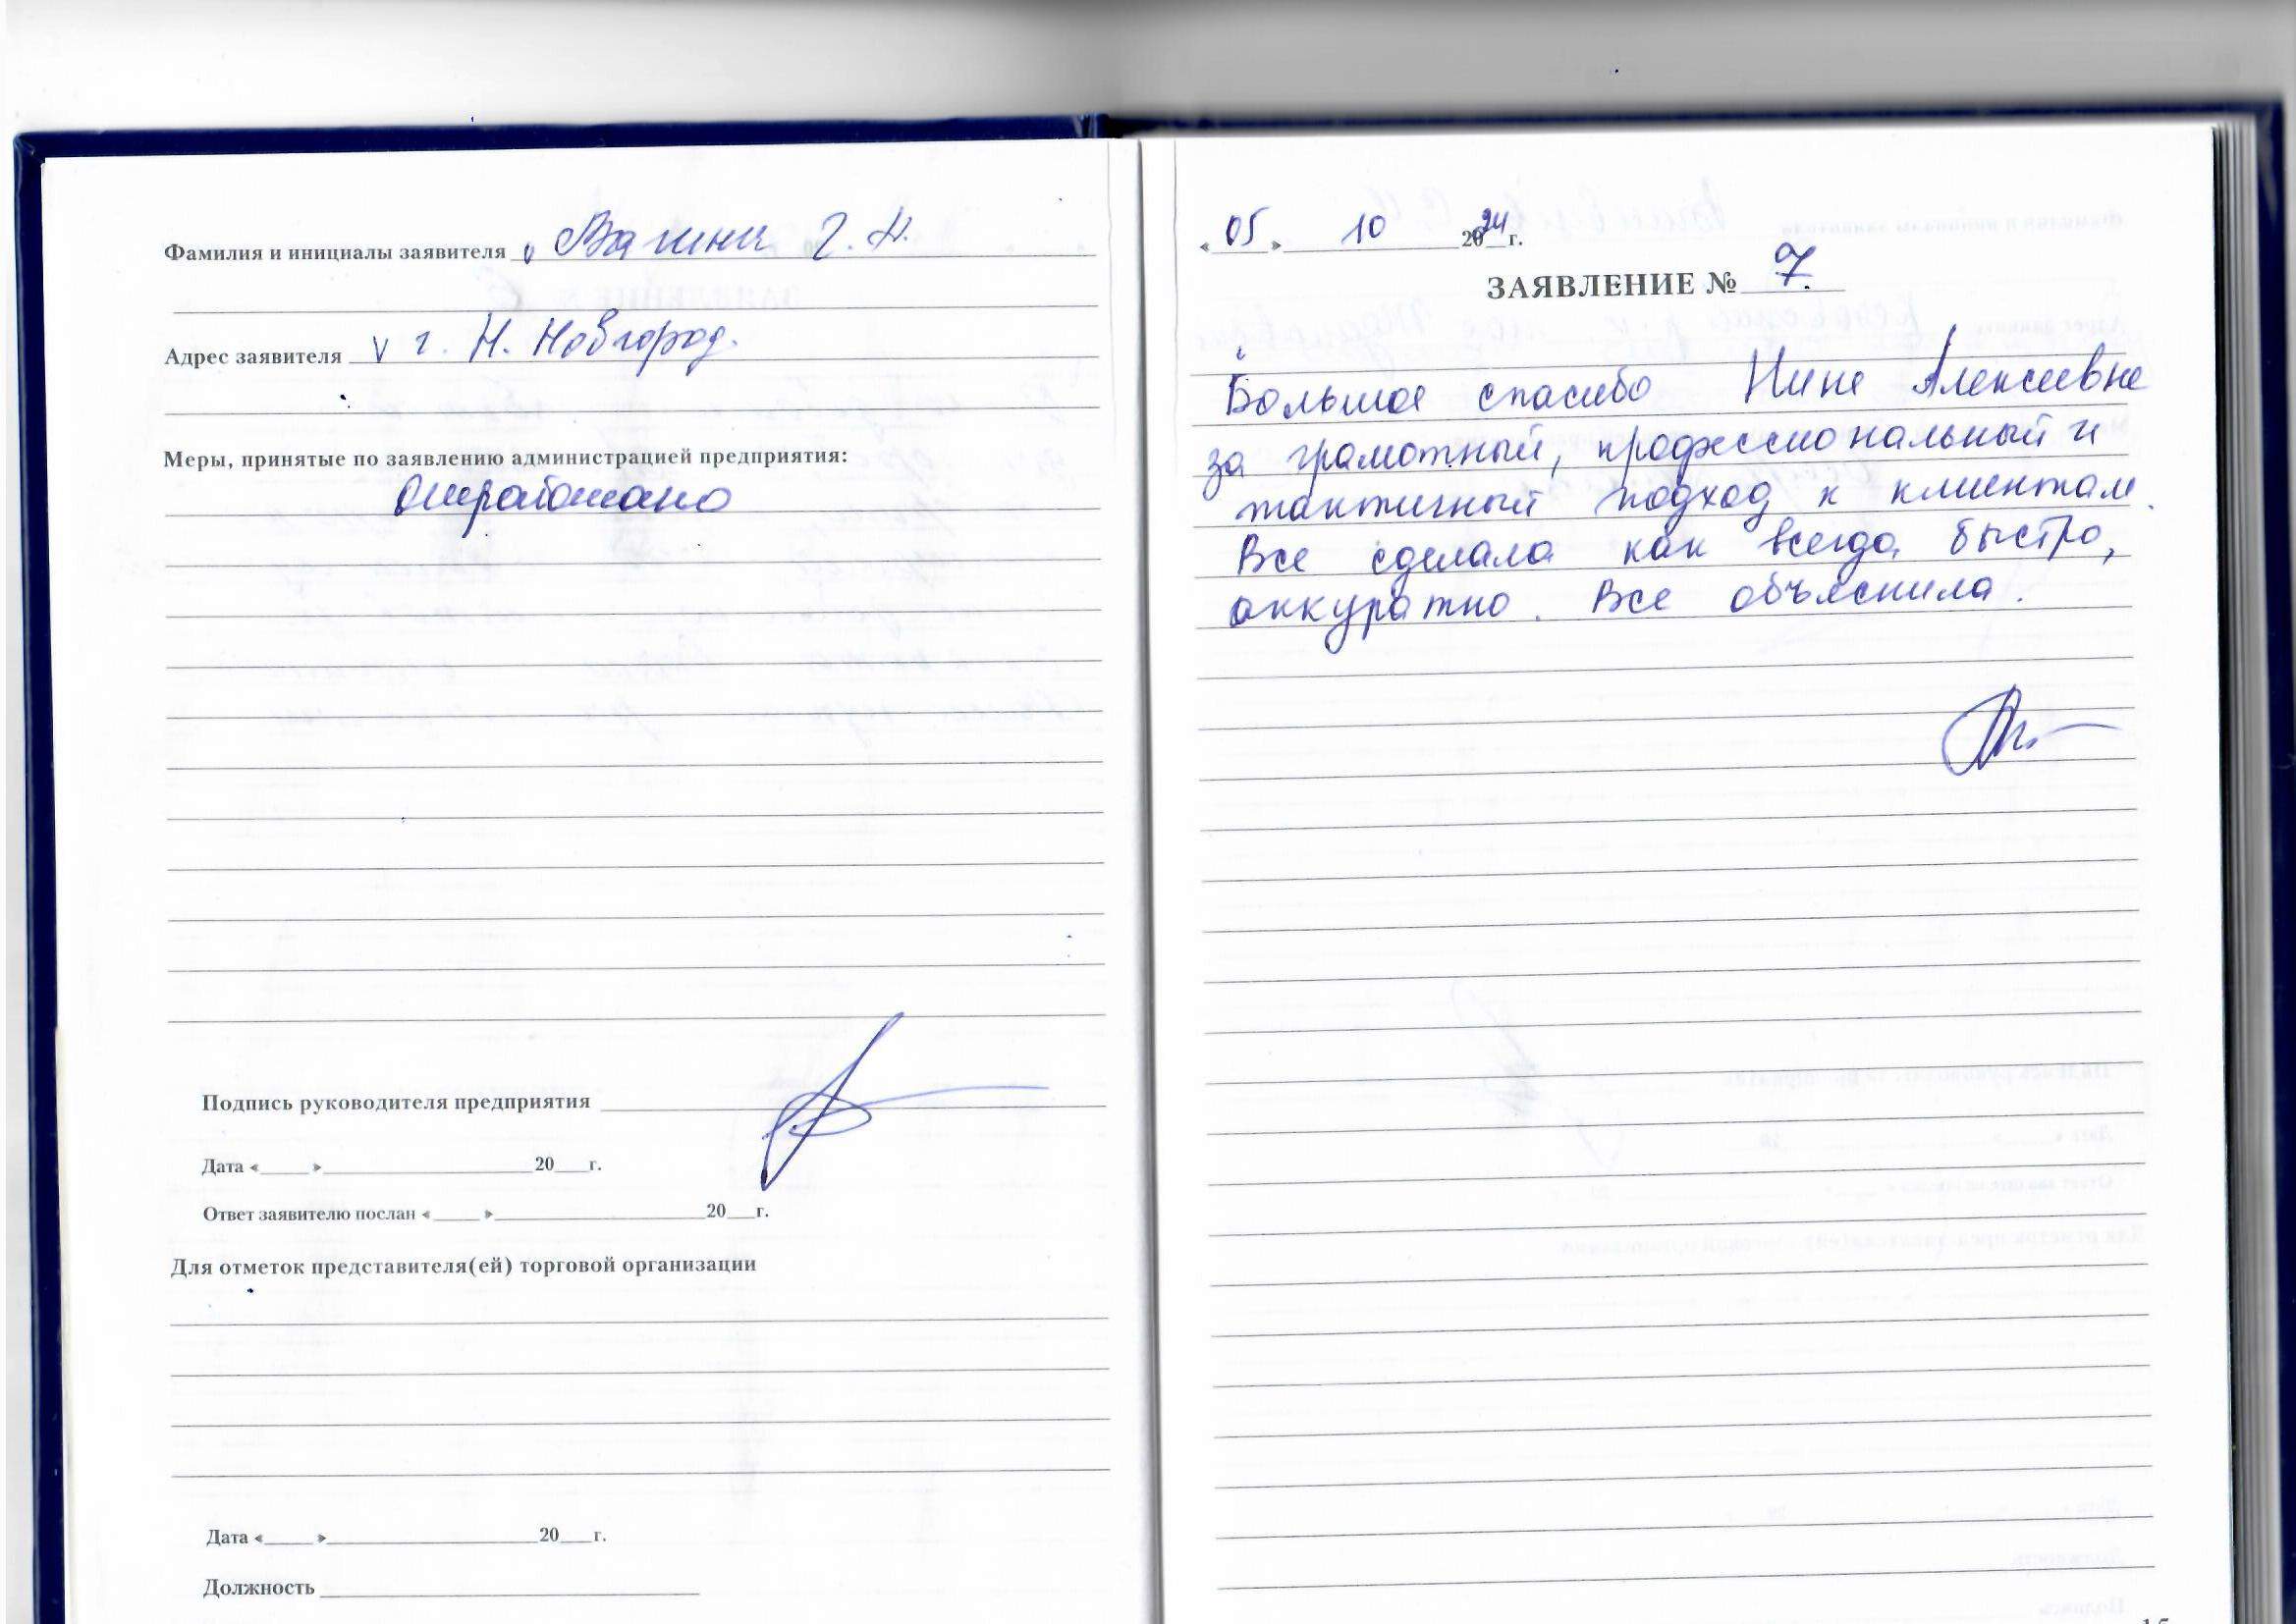 Фамилия и инициалы заявителя
Адрес заявителя г. Н. Новгород.
Меры, принятые по заявлению администрацией предприятия:
Отработано
Подпись руководителя предприятия
Дата « » 20 г.
Ответ заявителю послан « » 20 г.
Для отметок представителя(ей) торговой организации
Дата « » 20 г.
Должность
« 05 » 10 2024 г.
ЗАЯВЛЕНИЕ № 7.
Большое спасибо Нине Алексеевне
за грамотный, профессиональный и
тактичный подход к клиентам.
Все сделала как всегда быстро,
аккуратно. Все объяснила.